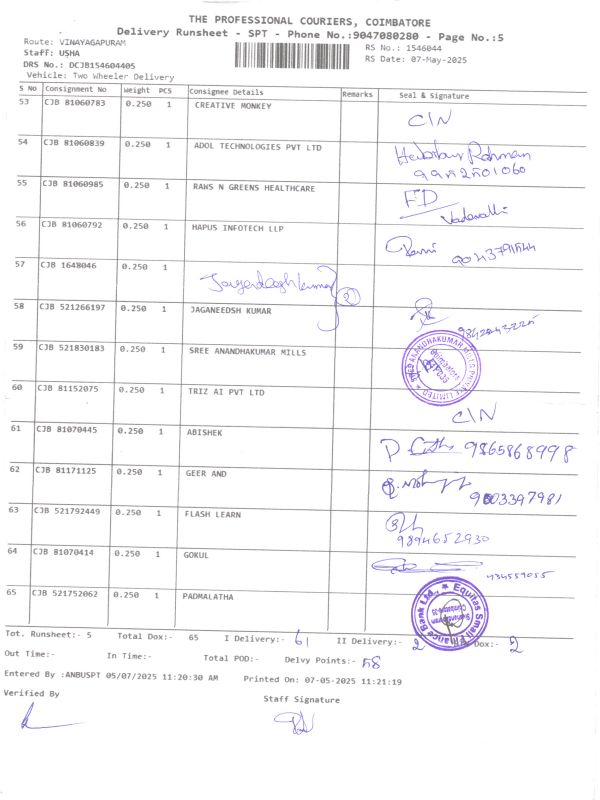 THE PROFESSIONAL COURIERS, COIMBATORE
Delivery Runsheet - SPT - Phone No.:9047080280 - Page No.:5
Route: VINAYAGAPURAM
RS No.: 1546044
Staff: USHA
RS Date: 07-May-2025
DRS No.: DCJB154604405
Vehicle: Two Wheeler Delivery
S No Consignment No Weight PCS Consignee Details Remarks Seal & Signature
53 CJB 81060783 0.250 1 CREATIVE MONKEY C/N
54 CJB 81060839 0.250 1 ADOL TECHNOLOGIES PVT LTD Rahman
55 CJB 81060985 0.250 1 RAWS N GREENS HEALTHCARE FD Vadavalli
56 CJB 81060792 0.250 1 HAPUS INFOTECH LLP
57 CJB 1648046 0.250 1 2
58 CJB 521266197 0.250 1 JAGANEEDSH KUMAR
59 CJB 521830183 0.250 1 SREE ANANDHAKUMAR MILLS ANANDHAKUMAR MILLS PRIVATE LIMITED
60 CJB 81152075 0.250 1 TRIZ AI PVT LTD C/N
61 CJB 81070445 0.250 1 ABISHEK 9865868998
62 CJB 81171125 0.250 1 GEER AND 9003397981
63 CJB 521792449 0.250 1 FLASH LEARN 9894652930
64 CJB 81070414 0.250 1 GOKUL
65 CJB 521752062 0.250 1 PADMALATHA Equitas Small Finance Bank Ltd.,
Tot. Runsheet:- 5 Total Dox:- 65 I Delivery:- 61 II Delivery:- 2 Dox:- 2
Out Time:- In Time:- Total POD:- Delvy Points:- 58
Entered By :ANBUSPT 05/07/2025 11:20:30 AM Printed On: 07-05-2025 11:21:19
Verified By Staff Signature